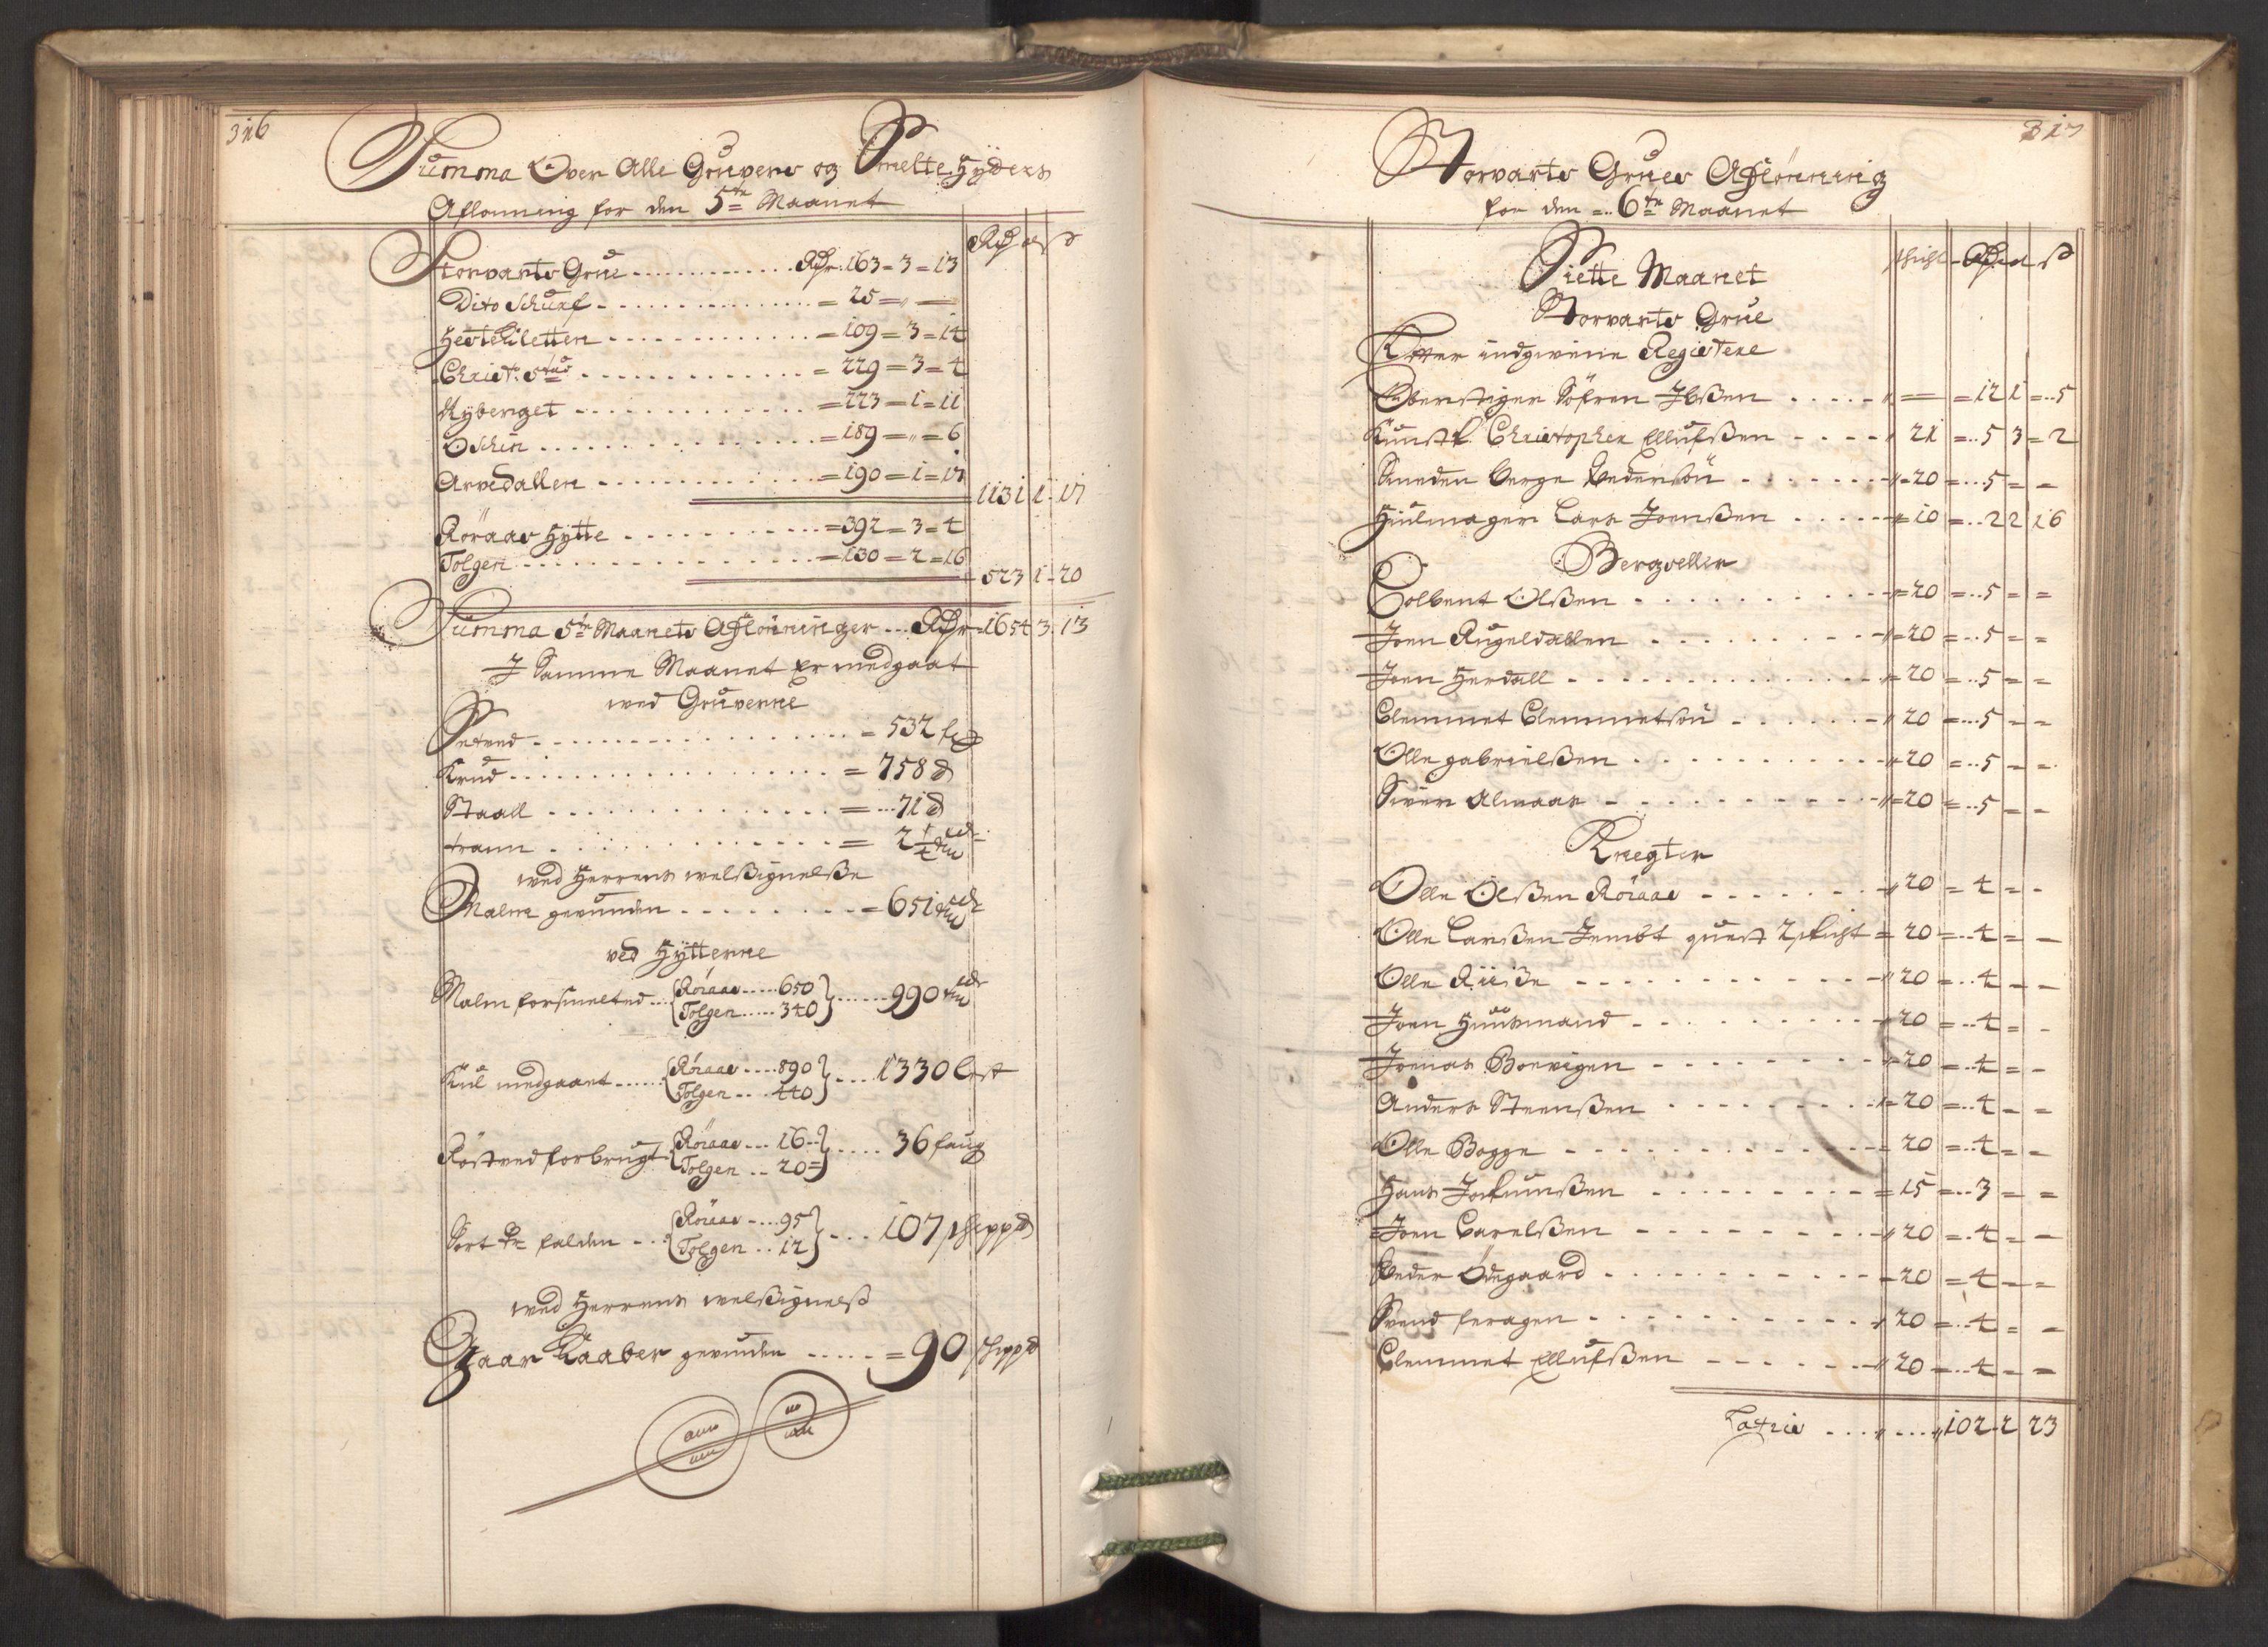 316
Summa Over Alle Gruvers og Smelte Hÿders
Aflonning for den 5te Maanet
Rdr
Storvarts Grue . . . . . Rdr. 163 = 3 = 13
Dito Schurf . . . . . = 25 = " —
Hesteklletten . . . . . = 109 = 3 = 14
Christ: Stød . . . . . = 229 = 3 = 4
Nÿberget . . . . . = 223 = 1 = 11
Schin . . . . . = 189 = " = 6
Arvedallen . . . . . = 190 = 1 = 17
1131 1 - 17
Röraas Hÿtte . . . . . = 392 = 3 = 4
Tolgen . . . . . = 130 = 2 = 16
523 1 - 20
Summa 5te Maanets Aflönninger . . . Rdr = 1654 3 . 13
J Samme Maanet er medgaat
ved Gruverne
Setved . . . . . = 532
Krud . . . . . = 758 ℔
Staall . . . . . = 71 ℔
trann . . . . . = 2 1/4
ved Herrens velsignelße
Malm gevunden . . . . . = 651
ved Hÿtterne
Malm forsmelted . . . Röraas . . . 650
Tolgen . . . 340 . . . 990
Kul medgaaet . . . Röraas . . . 890
Tolgen . . . 440 . . . 1330 lest
Röstved forbrugt Röraas . . . 16
Tolgen . . 20 = . . . 36 faug
Sort falden . . . Röraas . . . 95
Tolgen . . 12 . . . 107 schipp℔
ved Herrens velsignelß
Gaar Kaaber gevunden . . . . . = 90 schipp℔
317
Storvarts Grues Aflönning
for den = 6te Maanet
Siette Maanet
Storvarts Grue
Efter indgivene Registere
Oberstiger Söfren Ibßen . . . . = 12 1 = 5
Kunstk. Christopher Ellufßen . . . . 21 = 5 3 = 2
Smeden Berge Pedersön . . . . 20 = 5 = =
Hiulmager Lars Joenßen . . . . 10 = 2 2 16
Bergveller
Colbent Olßen . . . . 20 = 5 = =
Joen Rugeldallen . . . . 20 = 5 = =
Joen Herdall . . . . 20 = 5 = =
Clemmet Clemmetsön . . . . 20 = 5 = =
Olle gabrielßen . . . . 20 = 5 = =
Siver Almaas . . . . 20 = 5 = =
Knegter
Olle Olßen Röraas . . . . 20 = 4 = =
Olle Larßen Jembt 2 schicht = 20 = 4 = =
Olle Riiße . . . . 20 = 4 = =
Joen Huusmand . . . . 20 = 4 = =
Jonas Borvigen . . . . 20 = 4 = =
Anders Steenßen . . . . 20 = 4 = =
Olle Bagge . . . . 20 = 4 = =
Hans Jochumßen . . . . 15 = 3 = =
Joen Carelßen . . . . 20 = 4 = =
Peder Ödegaard . . . . 20 = 4 = =
Svend feragen . . . . 20 = 4 = =
Clemmet Ellufßen . . . . 20 = 4 = =
Latris . . . . 102 - 2 23